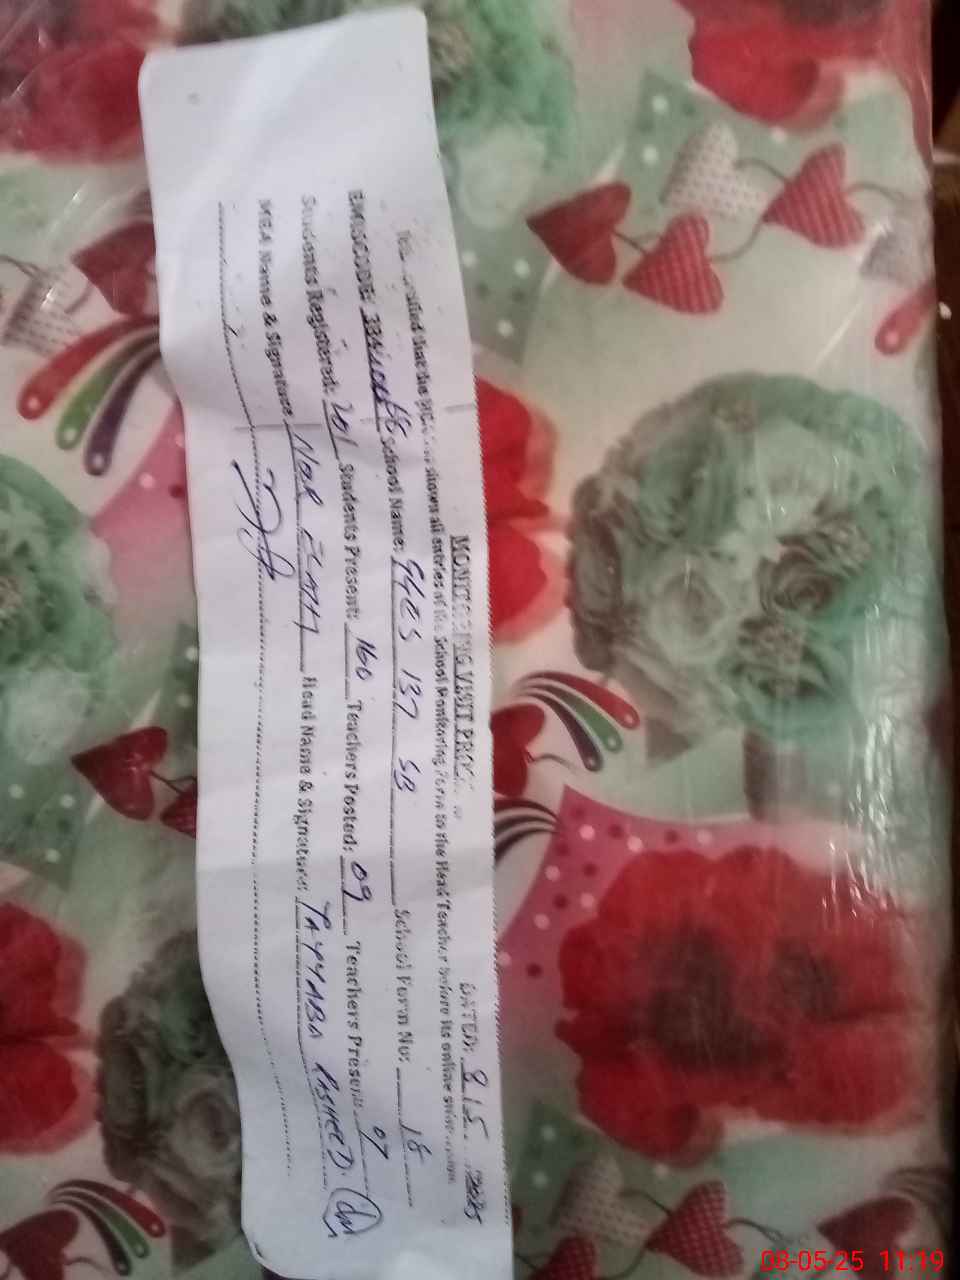 MONITORING VISIT PROOF
DATED: 8/5 2025
that the MEA has shown all entries of the School Monitoring Form to the Head Teacher before its online
EMISCODE: School Name: GGES 137 SB School Form No: 18
Students Registered: 201 Students Present: 160 Teachers Posted: 09 Teachers Present: 07
MEA Name & Signature NOOR Head Name & Signature: TAYYABA RASHEED.
08-05-25 11:19